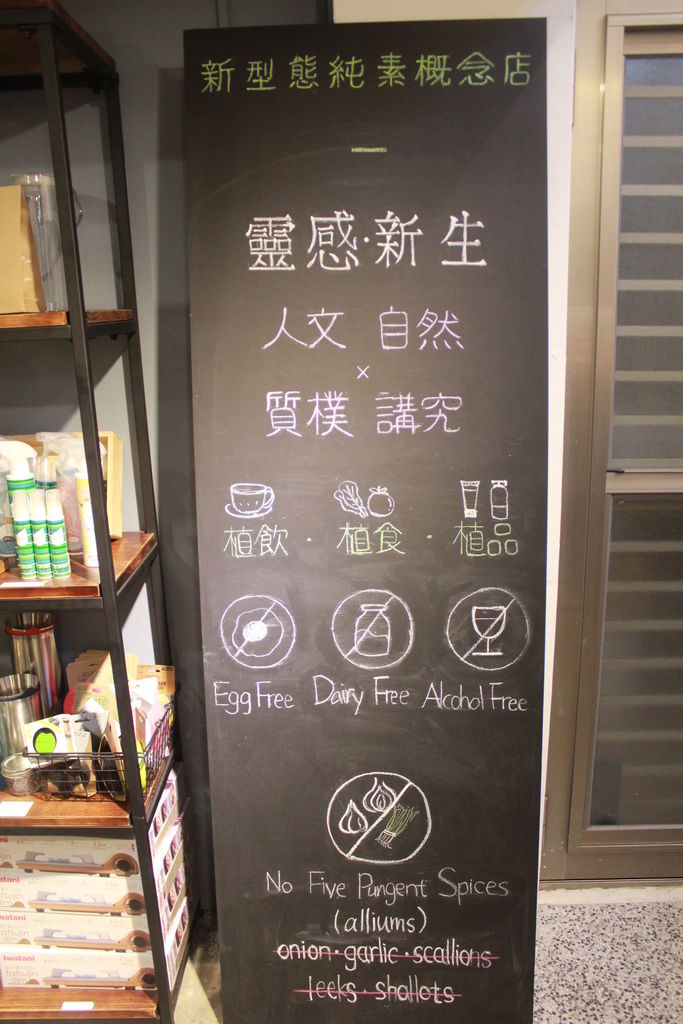 新型態純素概念店
靈感·新生
人文 自然
×
質樸 講究
植飲 · 植食 · 植品
Egg Free Dairy Free Alcohol Free
No Five Pungent Spices
(alliums)
onion·garlic·scallions
leeks·shallots
iwatani
tatsujin
slim